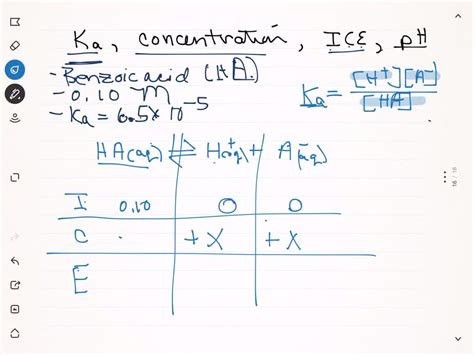 Ka, concentration, ICE, pH
- Benzoic acid (HA).
- 0.10 M
- Ka = 6.5 x 10^-5
Ka = [H+][A-] / [HA]
HA(aq) ⇌ H+(aq) + A-(aq)
I 0.10 0 0
C · +X +X
E
16 / 18